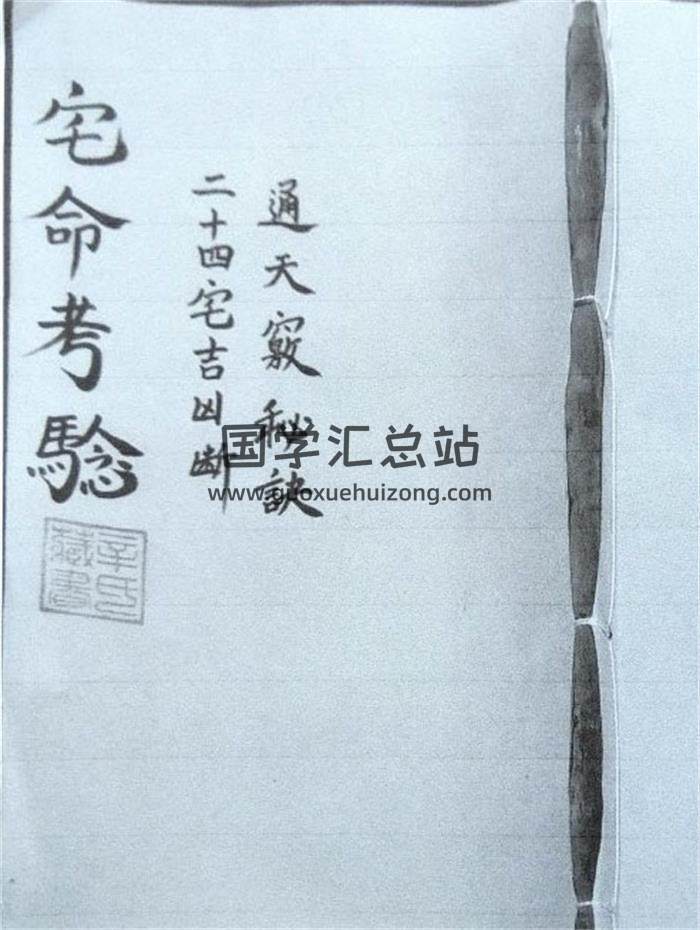 通天竅秘訣
二十四宅吉凶斷
宅命考驗
辛氏藏書
国学汇总站
www.guoxuehuizong.com